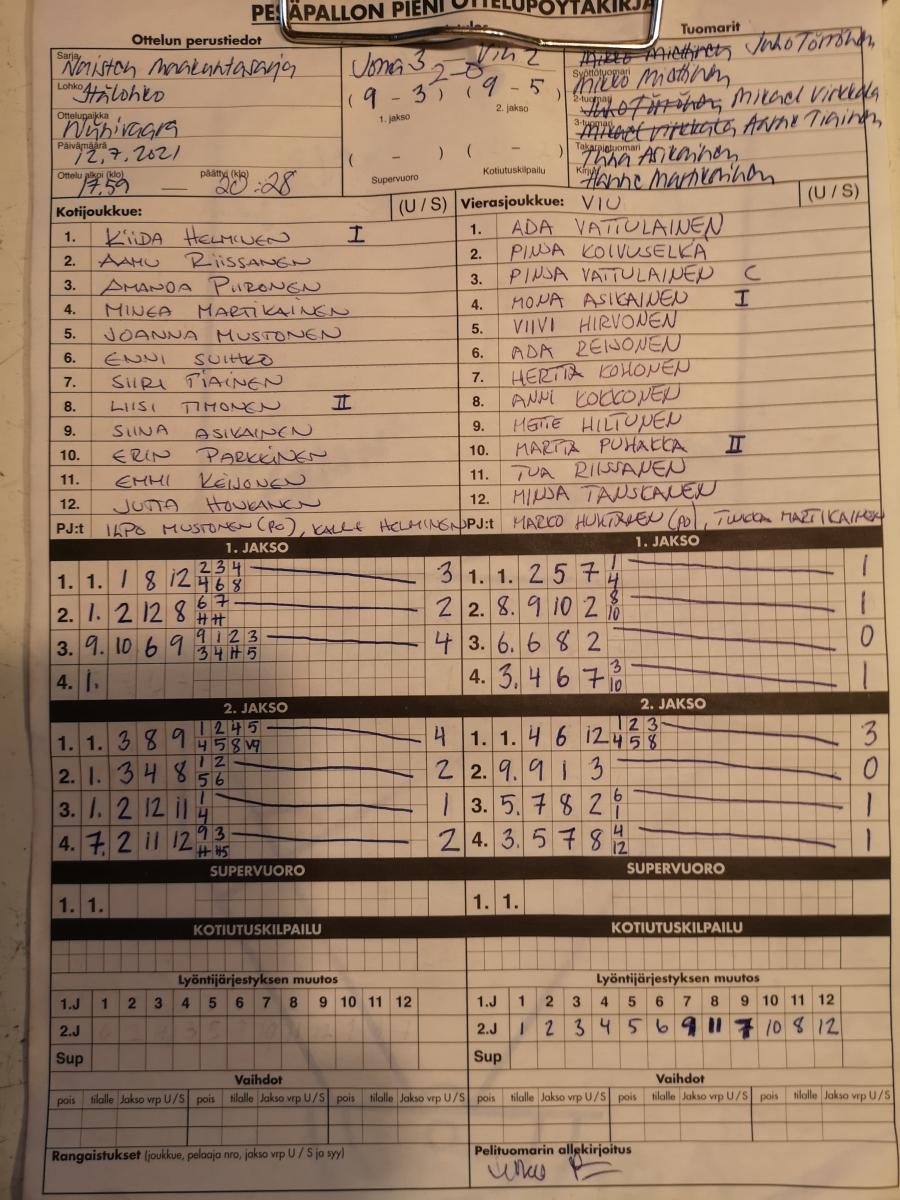 PESÄPALLON PIENI OTTELUPÖYTÄKIRJA
Ottelun perustiedot
Tuomarit
Sarja Naisten maakuntasarja
Lohko Itälohko
Ottelupaikka Niinivaara
Päivämäärä 12.7.2021
Ottelu alkoi (klo) 17.59 — päättyi (klo) 20:28
Joma 3 — ViU 2
2-0
( 9 - 3 ) ( 9 - 5 )
1. jakso 2. jakso
( - ) ( - )
Supervuoro Kotiutuskilpailu
Mikko Miettinen Juho Törrönen
Syöttötuomari Mikko Miettinen
2-tuomari Juho Törrönen Mikael Virkkala
3-tuomari Mikael Virkkala Aarne Tiainen
Takarajatuomari Asikainen
Kirjuri Hanne Martikainen
Kotijoukkue: (U / S)
1. KIIDA HELMINEN I
2. AAMU RIISSANEN
3. AMANDA PIIRONEN
4. MINEA MARTIKAINEN
5. JOANNA MUSTONEN
6. ENNI SUIHKO
7. SIIRI TIAINEN
8. LIISI TIMONEN II
9. SIINA ASIKAINEN
10. ERIN PARKKINEN
11. EMMI KEIJONEN
12. JUTTA HOUKANEN
PJ:t ILPO MUSTONEN (PO), KALLE HELMINEN
Vierasjoukkue: VIU (U / S)
1. ADA VATTULAINEN
2. PINJA KOIVUSELKÄ
3. PINJA VATTULAINEN C
4. MONA ASIKAINEN I
5. VIIVI HIRVONEN
6. ADA REIJONEN
7. HERTTA KOHONEN
8. ANNI KOKKONEN
9. METTE HILTUNEN
10. MARTTA PUHAKKA II
11. TUA RIISSANEN
12. MINJA TANSKANEN
PJ:t MARKO (PO), TUKKA MARTIKAINEN
1. JAKSO
1. 1. 1 8 12 2 3 4 3
4 6 8
2. 1. 2 12 8 6 7 2
H H
3. 9. 10 6 9 9 1 2 3 4
3 4 H 5
4. 1.
1. JAKSO
1. 1. 2 5 7 1 1
4
2. 8. 9 10 2 8 1
10
3. 6. 6 8 2 0
4. 3. 4 6 7 3 1
10
2. JAKSO
1. 1. 3 8 9 1 2 4 5 4
4 5 8 9
2. 1. 3 4 8 1 2 2
5 6
3. 1. 2 12 11 1 1
4
4. 7. 2 11 12 9 3 2
H H5
2. JAKSO
1. 1. 4 6 12 1 2 3 3
4 5 8
2. 9. 9 1 3 0
3. 5. 7 8 2 6 1
1
4. 3. 5 7 8 4 1
12
SUPERVUORO
1. 1.
SUPERVUORO
1. 1.
KOTIUTUSKILPAILU
KOTIUTUSKILPAILU
Lyöntijärjestyksen muutos
1.J 1 2 3 4 5 6 7 8 9 10 11 12
2.J
Sup
Lyöntijärjestyksen muutos
1.J 1 2 3 4 5 6 7 8 9 10 11 12
2.J 1 2 3 4 5 6 9 11 7 10 8 12
Sup
Vaihdot
pois tilalle Jakso vrp U / S pois tilalle Jakso vrp U / S pois tilalle Jakso vrp U / S
Vaihdot
pois tilalle Jakso vrp U / S pois tilalle Jakso vrp U / S pois tilalle Jakso vrp U / S
Rangaistukset (joukkue, pelaaja nro, jakso vrp U / S ja syy)
Pelituomarin allekirjoitus